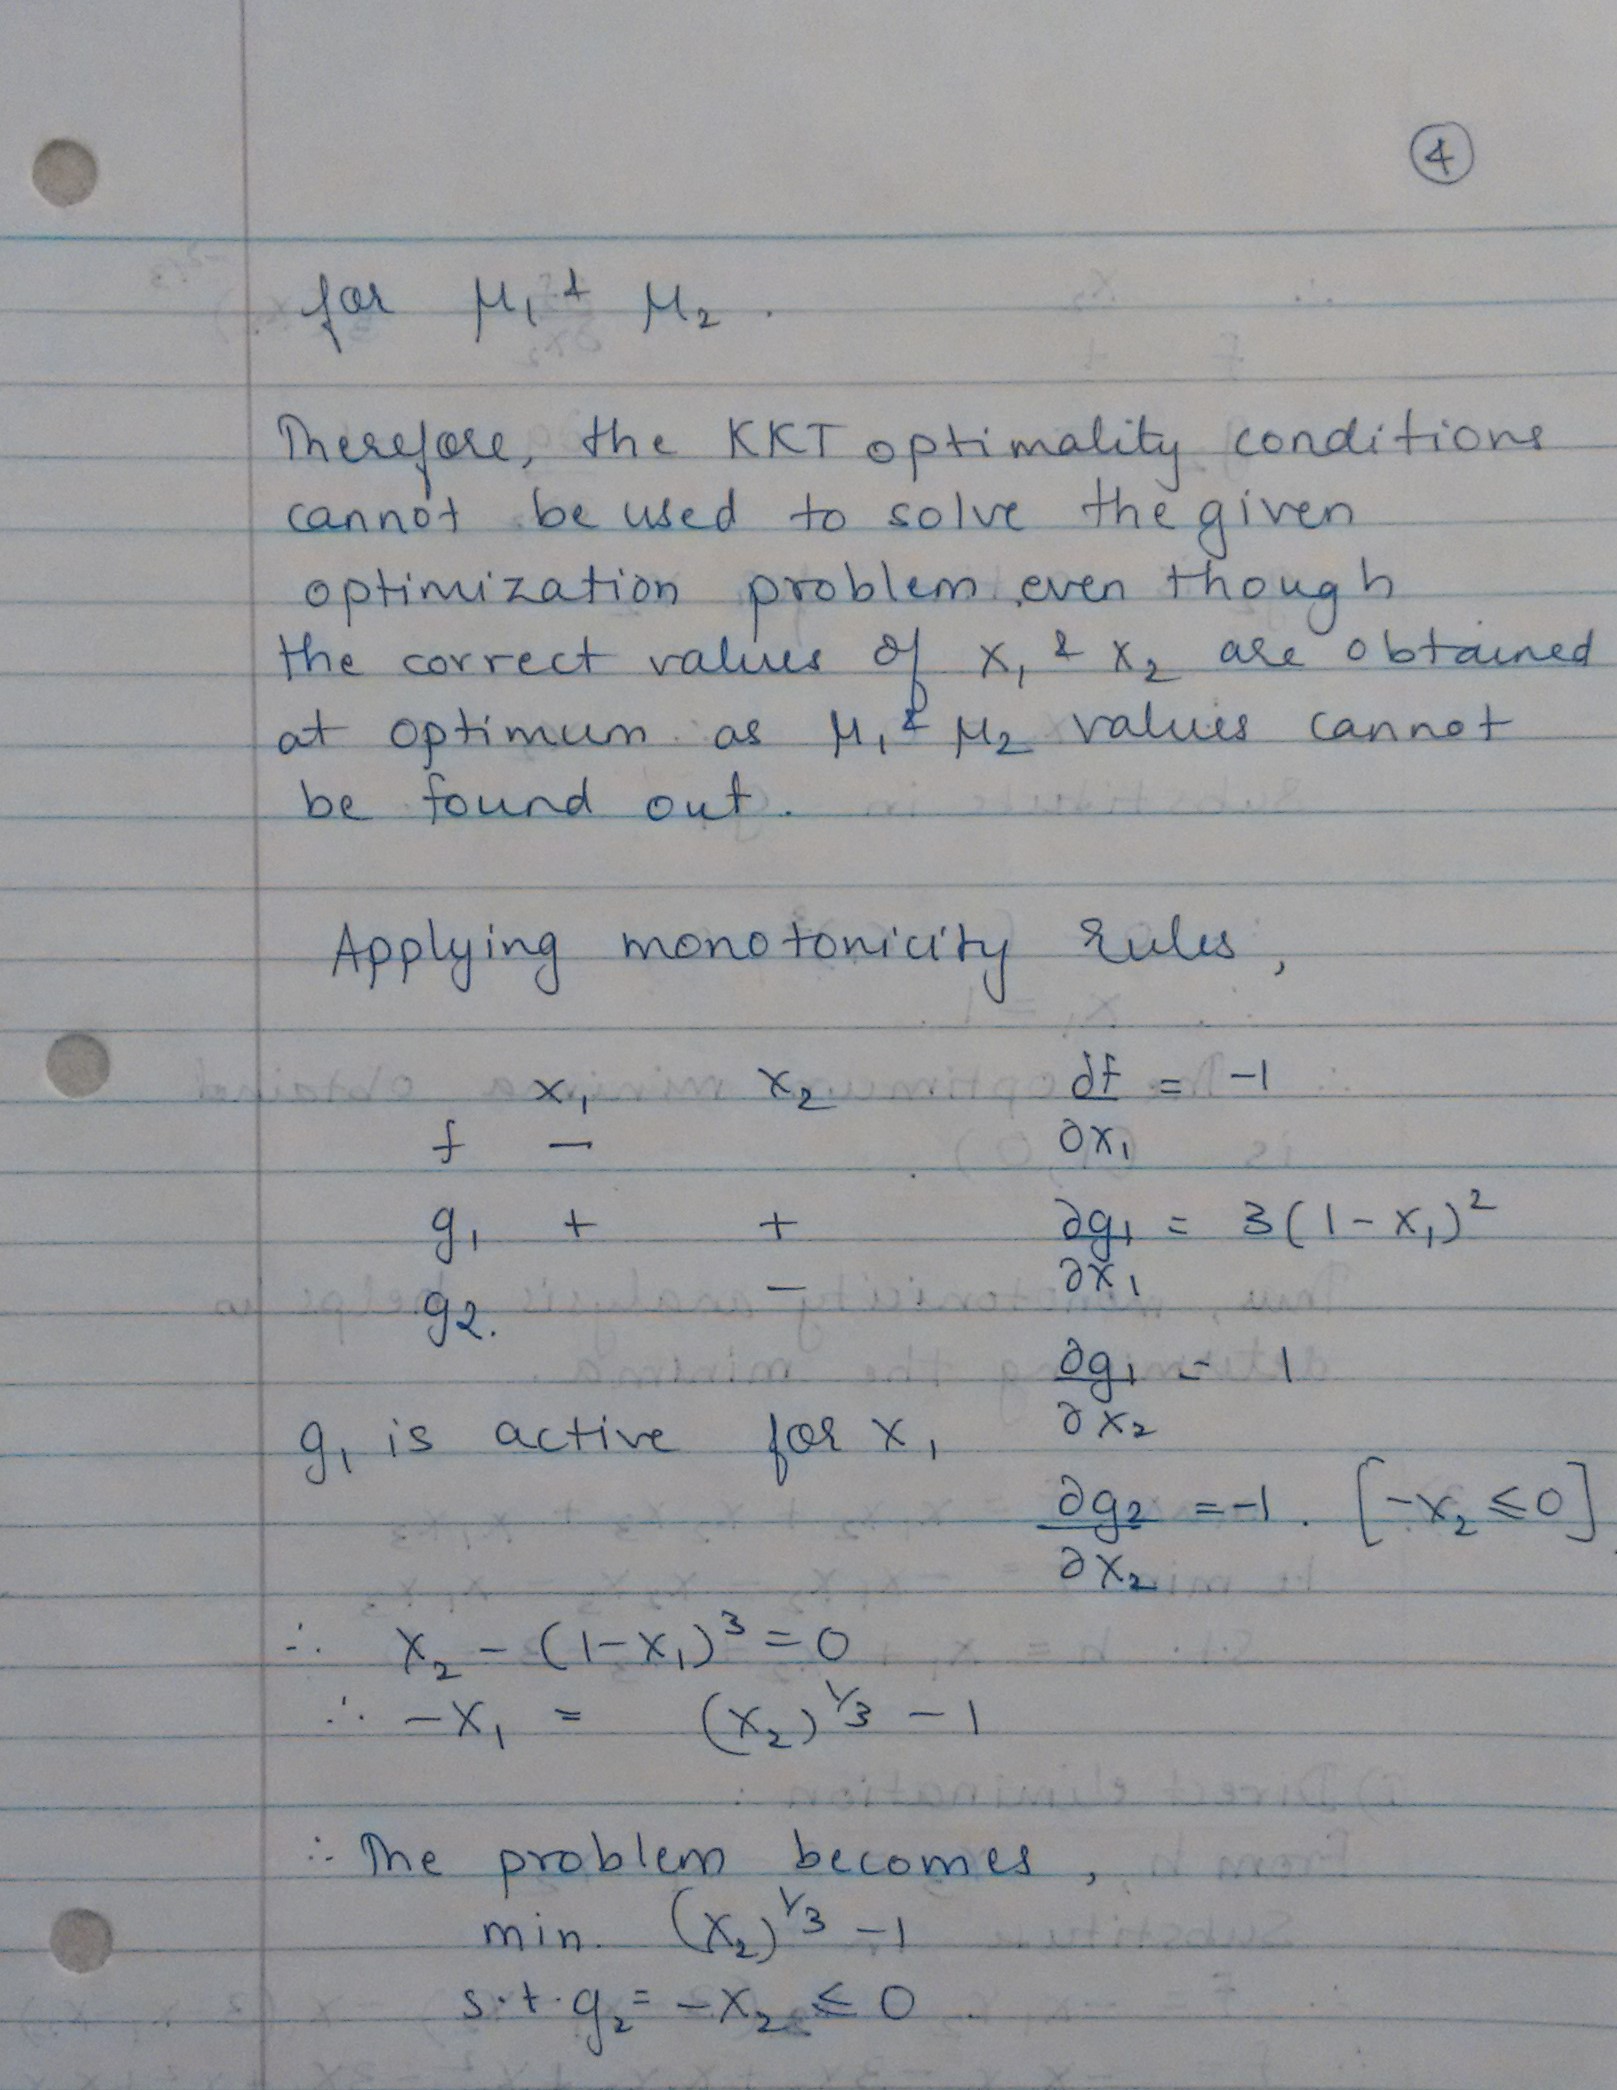 4
for μ₁ & μ₂.
Therefore, the KKT optimality conditions
cannot be used to solve the given
optimization problem even though
the correct values of x₁ & x₂ are obtained
at optimum as μ₁ & μ₂ values cannot
be found out.
Applying monotonicity rules,
x₁ x₂ ∂f/∂x₁ = -1
f −
g₁ + + ∂g₁/∂x₁ = 3(1-x₁)²
g₂. −
∂g₁/∂x₂ = 1
g₁ is active for x₁
∂g₂/∂x₂ = -1. [-x₂ ≤ 0]
∴ x₂ - (1-x₁)³ = 0
∴ -x₁ = (x₂)^1/3 - 1
∴ The problem becomes,
min. (x₂)^1/3 - 1
s.t. g₂ = -x₂ ≤ 0.